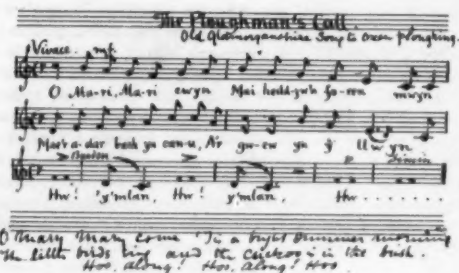 The Ploughman's Call.
Old Glamorganshire Song to Oxen Ploughing.
Vivace. mf.
O Ma-ri, Ma-ri cwyn Mai hedd-yw'n fo-reu mwyn
Mae'r a-dar bach yn can-u, A'r gw-cw yn y llwyn
Hw! 'y'mlan, Hw! y'mlan, Hw . . . . . .
O Mary Mary come 'Tis a bright summer morning
The little birds sing and the cuckoo's in the bush.
Hoo, along! Hoo, along! Hoo